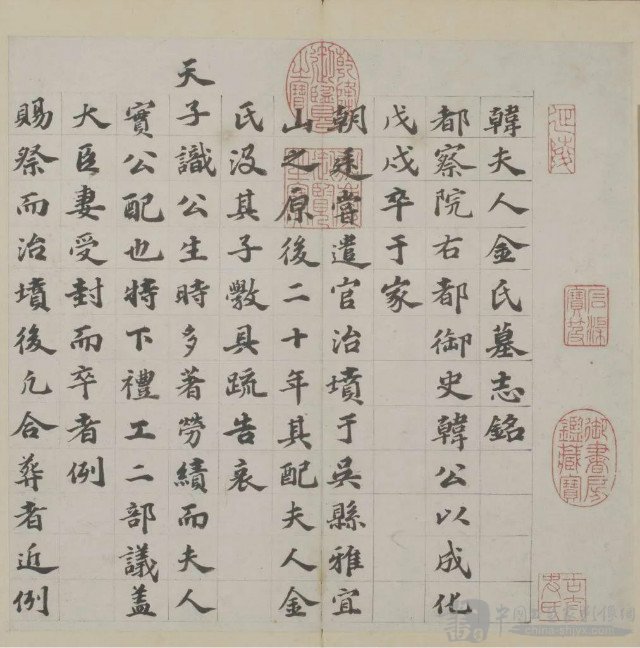 韓夫人金氏墓志銘
都察院右都御史韓公以成化
戊戌卒于家
朝廷嘗遣官治墳于吳縣雅宜
山之原後二十年其配夫人金
氏沒其子斆具疏告哀
天子識公生時多著勞績而夫人
實公配也特下禮工二部議蓋
大臣妻受封而卒者例
賜祭而治墳後凡合葬者近例
御書房
鑑藏寶